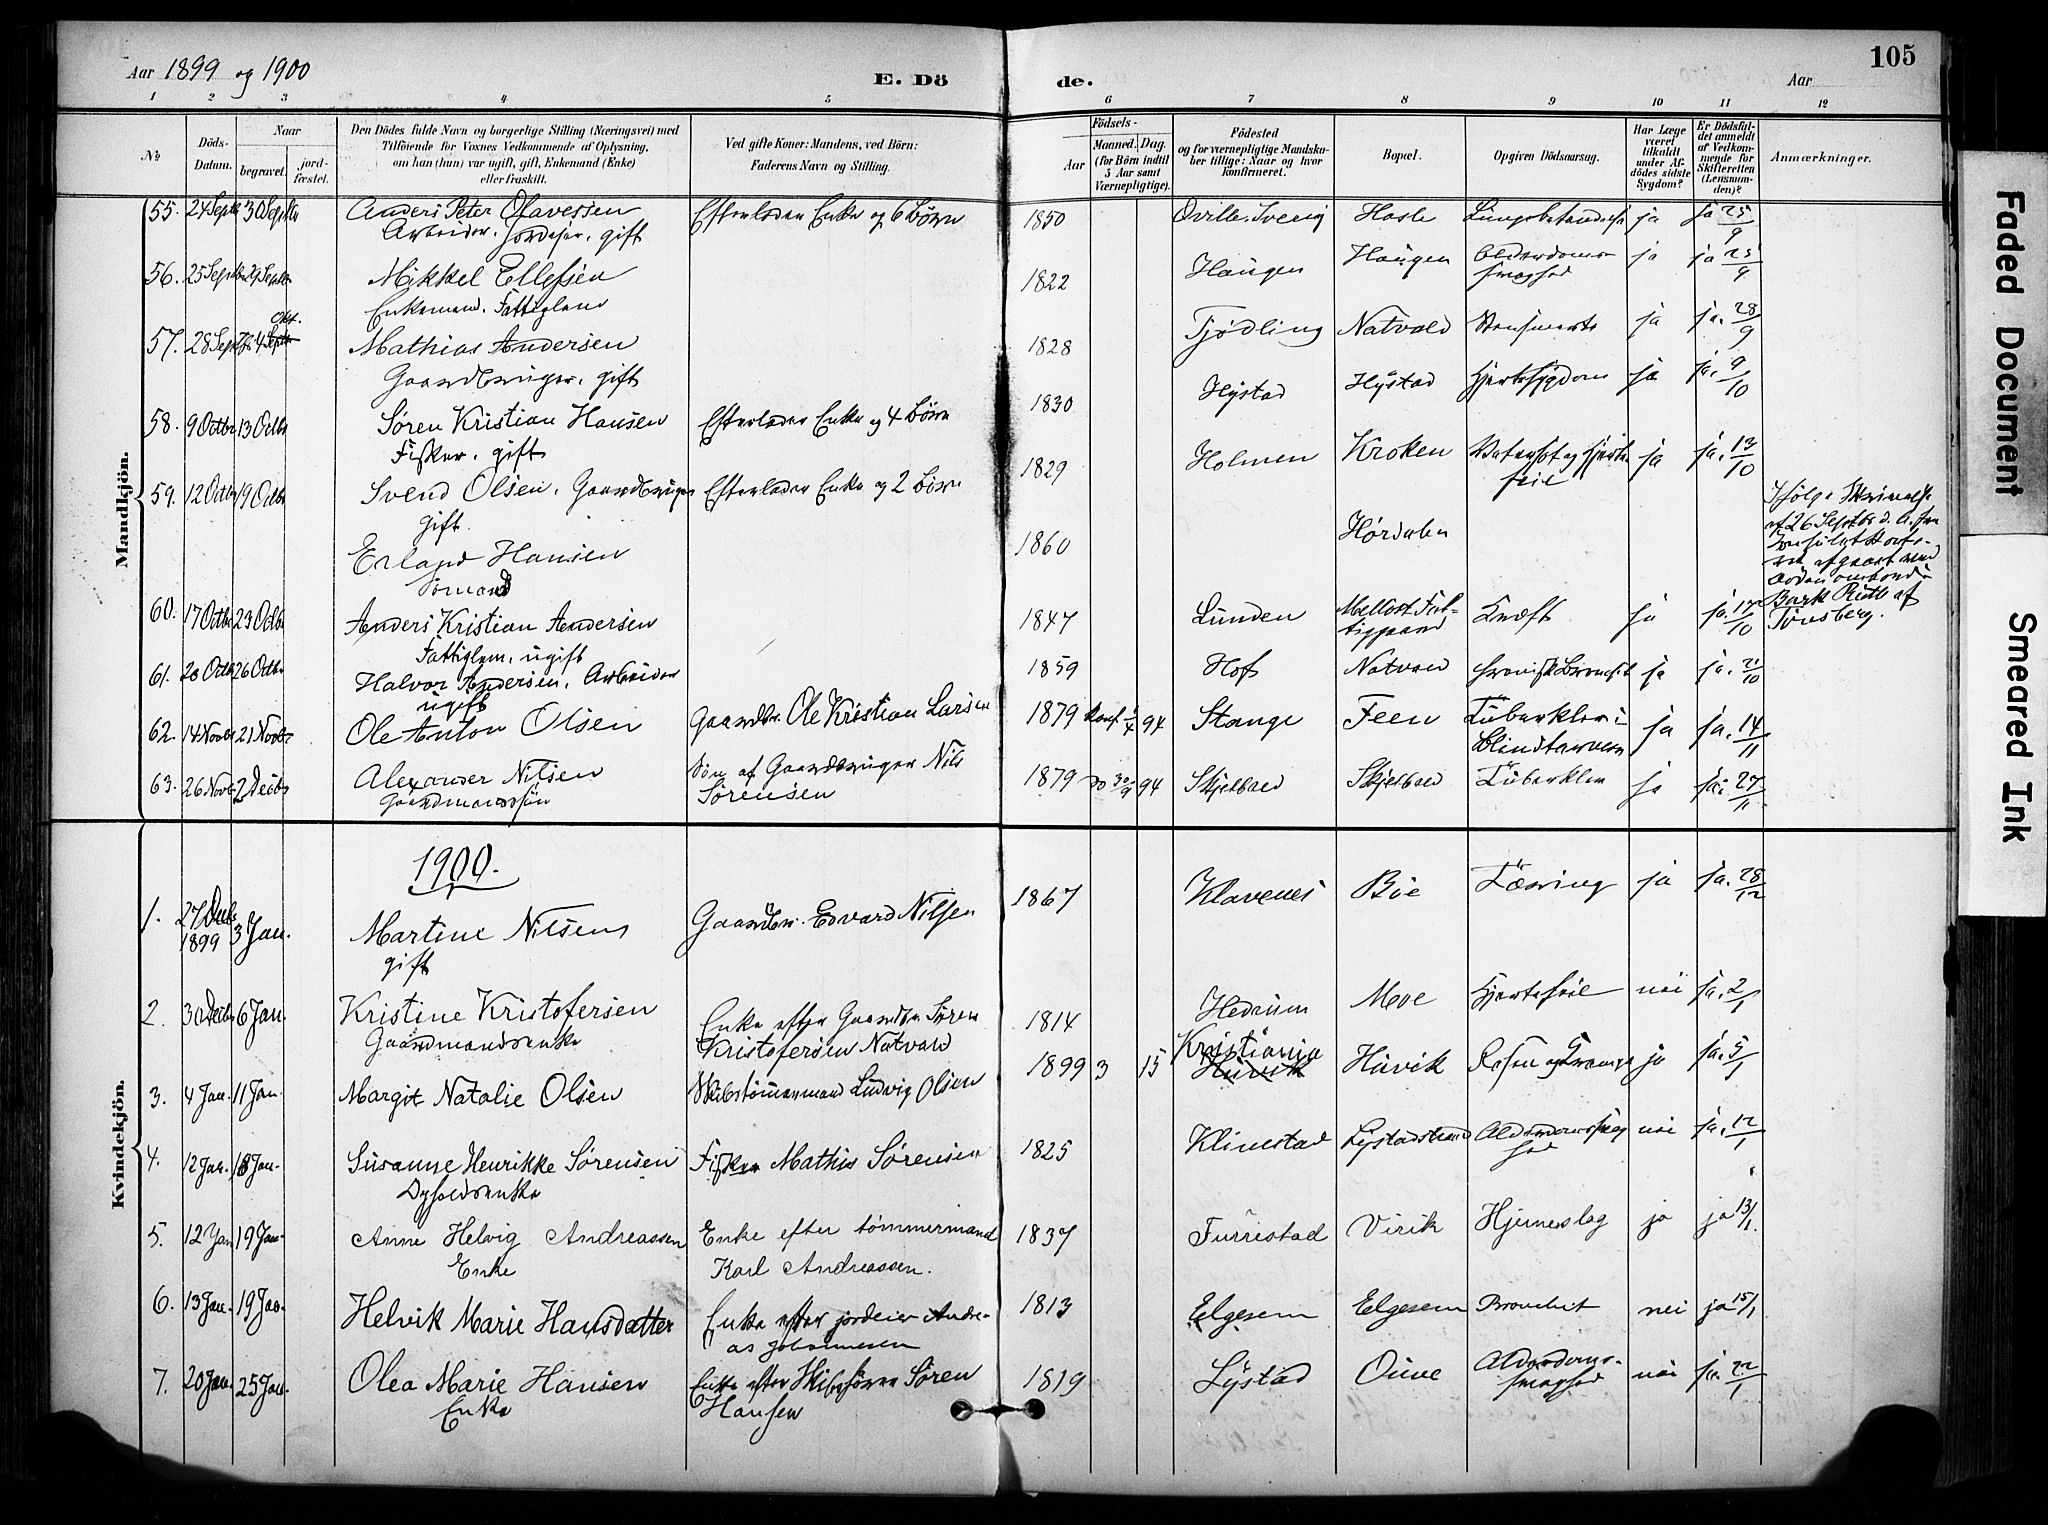 Aar 1899 og 1900
E. Dö
de.
Aar
105
1 2 3 4 5 6 7 8 9 10 11 12
No
Döds-Datum.
Naar
begravet.
jord-fæstet.
Den Dödes fulde Navn og borgerlige Stilling (Næringsvei) med
Tilföiende for Voxnes Vedkommende af Oplysning,
om han (hun) var ugift, gift, Enkemand (Enke)
eller fraskilt.
Ved gifte Koner: Mandens, ved Börn:
Faderens Navn og Stilling.
Födsels-
Aar
Maaned. Dag.
(for Börn indtil
5 Aar samt
Værnepligtige).
Födested
og for værnepligtige Mandska-
ber tillige: Naar og hvor
konfirmeret.
Bopæl.
Opgiven Dödsaarsag.
Har Læge
været
tilkaldt
under Af-
dödes sidste
Sygdom?
Er Dödsfal-
det anmeldt
af Vedkom-
mende for
Skifteretten
(Lensman-
den)?
Anmærkninger.
Mandkjön.
55. 24 Septbr 30 Septbr Anders Peter Olavessen Efterlader Enke og 6 Børn 1850 Sverig Hasle ja ja 25/9
Arbeider, Jordeier, gift
56. 25 Septbr 29 Septbr Mikkel Ellefsen 1822 Haugen Haugen Alderdoms- ja ja 25/9
svaghed
Enkemand. Fattiglem
57. 28 Sept Okt. 4 Septbr Mathias Andersen 1828 Tjødling Natvald ja ja. 28/9
Gaardbruger, gift
58. 9 Octbr 13 Octbr Søren Kristian Hansen Efterlader Enke og 4 Børn 1830 Hystad Hystad Hjertesygdom ja ja. 9/10
Fisker, gift
59. 12 Octbr 19 Octbr Svend Olsen. Gaardbruger Efterlader Enke og 2 Børn 1829 Holmen Kroken Vatersot og Hjerte ja ja. 13/10
feil
gift.
Erland Hansen 1860 Hørdalen
Sømand
Ifølge Skrivelse
af 26 Septbr d. A. fra
afgaaet ved
Døden ombord i
Bark Ruth af
Tønsberg.
60. 17 Octbr 23 Octbr Anders Kristian Andersen 1847 Lunden ja ja. 17/10
Fattiglem, ugift
61. 20 Octbr 26 Octbr Halvor Andersen. Arbeider 1859 Hof Natvald kronisk Bronchit ja ja. 21/10
ugift
62. 14 Novbr 21 Novbr Ole Anton Olsen Gaardbr. Ole Kristian Larsen 1879 Konf. 1/4 94 Stange Feen Tuberkler i ja ja. 14/11
Blindtarmen
63. 26 Novbr 2 Decbr Alexander Nilsen Søn af Gaardbruger Nils 1879 do 30/9 94 Skjelbred Skjelbred Tuberkler ja ja. 27/11
Gaardmandssøn Sørensen
Kvindekjön.
1900.
1. 27 Decbr 1899 3 Jan. Martine Nilsen Gaardbr. Edvard Nilsen 1867 Klavenes Bøe Tæring ja ja. 28/12
gift
2. 30 Decbr 6 Jan. Kristine Kristofersen Enke efter Gaardbr. Søren 1814 Hedrum Moe Hjertefeil nei ja. 2/1
Gaardmandsenke Kristofersen Natvald
3. 4 Jan. 11 Jan. Margit Natalie Olsen Skibstømmermand Ludvig Olsen 1899 3 15 Kristiania Huvik Huvik Rosen og Krampe ja ja. 5/1
4. 12 Jan. 18 Jan. Susanne Henrikke Sørensen Fisker Mathis Sørensen 1825 Klinestad Lystadstrand Alderdomssvag nei ja. 12/1
hed
Enke
5. 12 Jan 19 Jan. Anne Helvig Andreassen Enke efter tømmermand 1837 Furrestad Virik Hjerneslag ja ja 13/1.
Enke Karl Andreassen.
6. 13 Jan. 19 Jan. Helvik Marie Hansdatter Enke efter jordeier Andre- 1813 Elgesem Elgesem Bronchit nei ja 15/1
as Johannesen
7. 20 Jan. 25 Jan. Olea Marie Hansen Enke efter Skibsfører Søren 1819 Lystad Ouve Alderdoms- nei ja. 22/1
svaghed
Enke Hansen
Faded Document
Smeared Ink